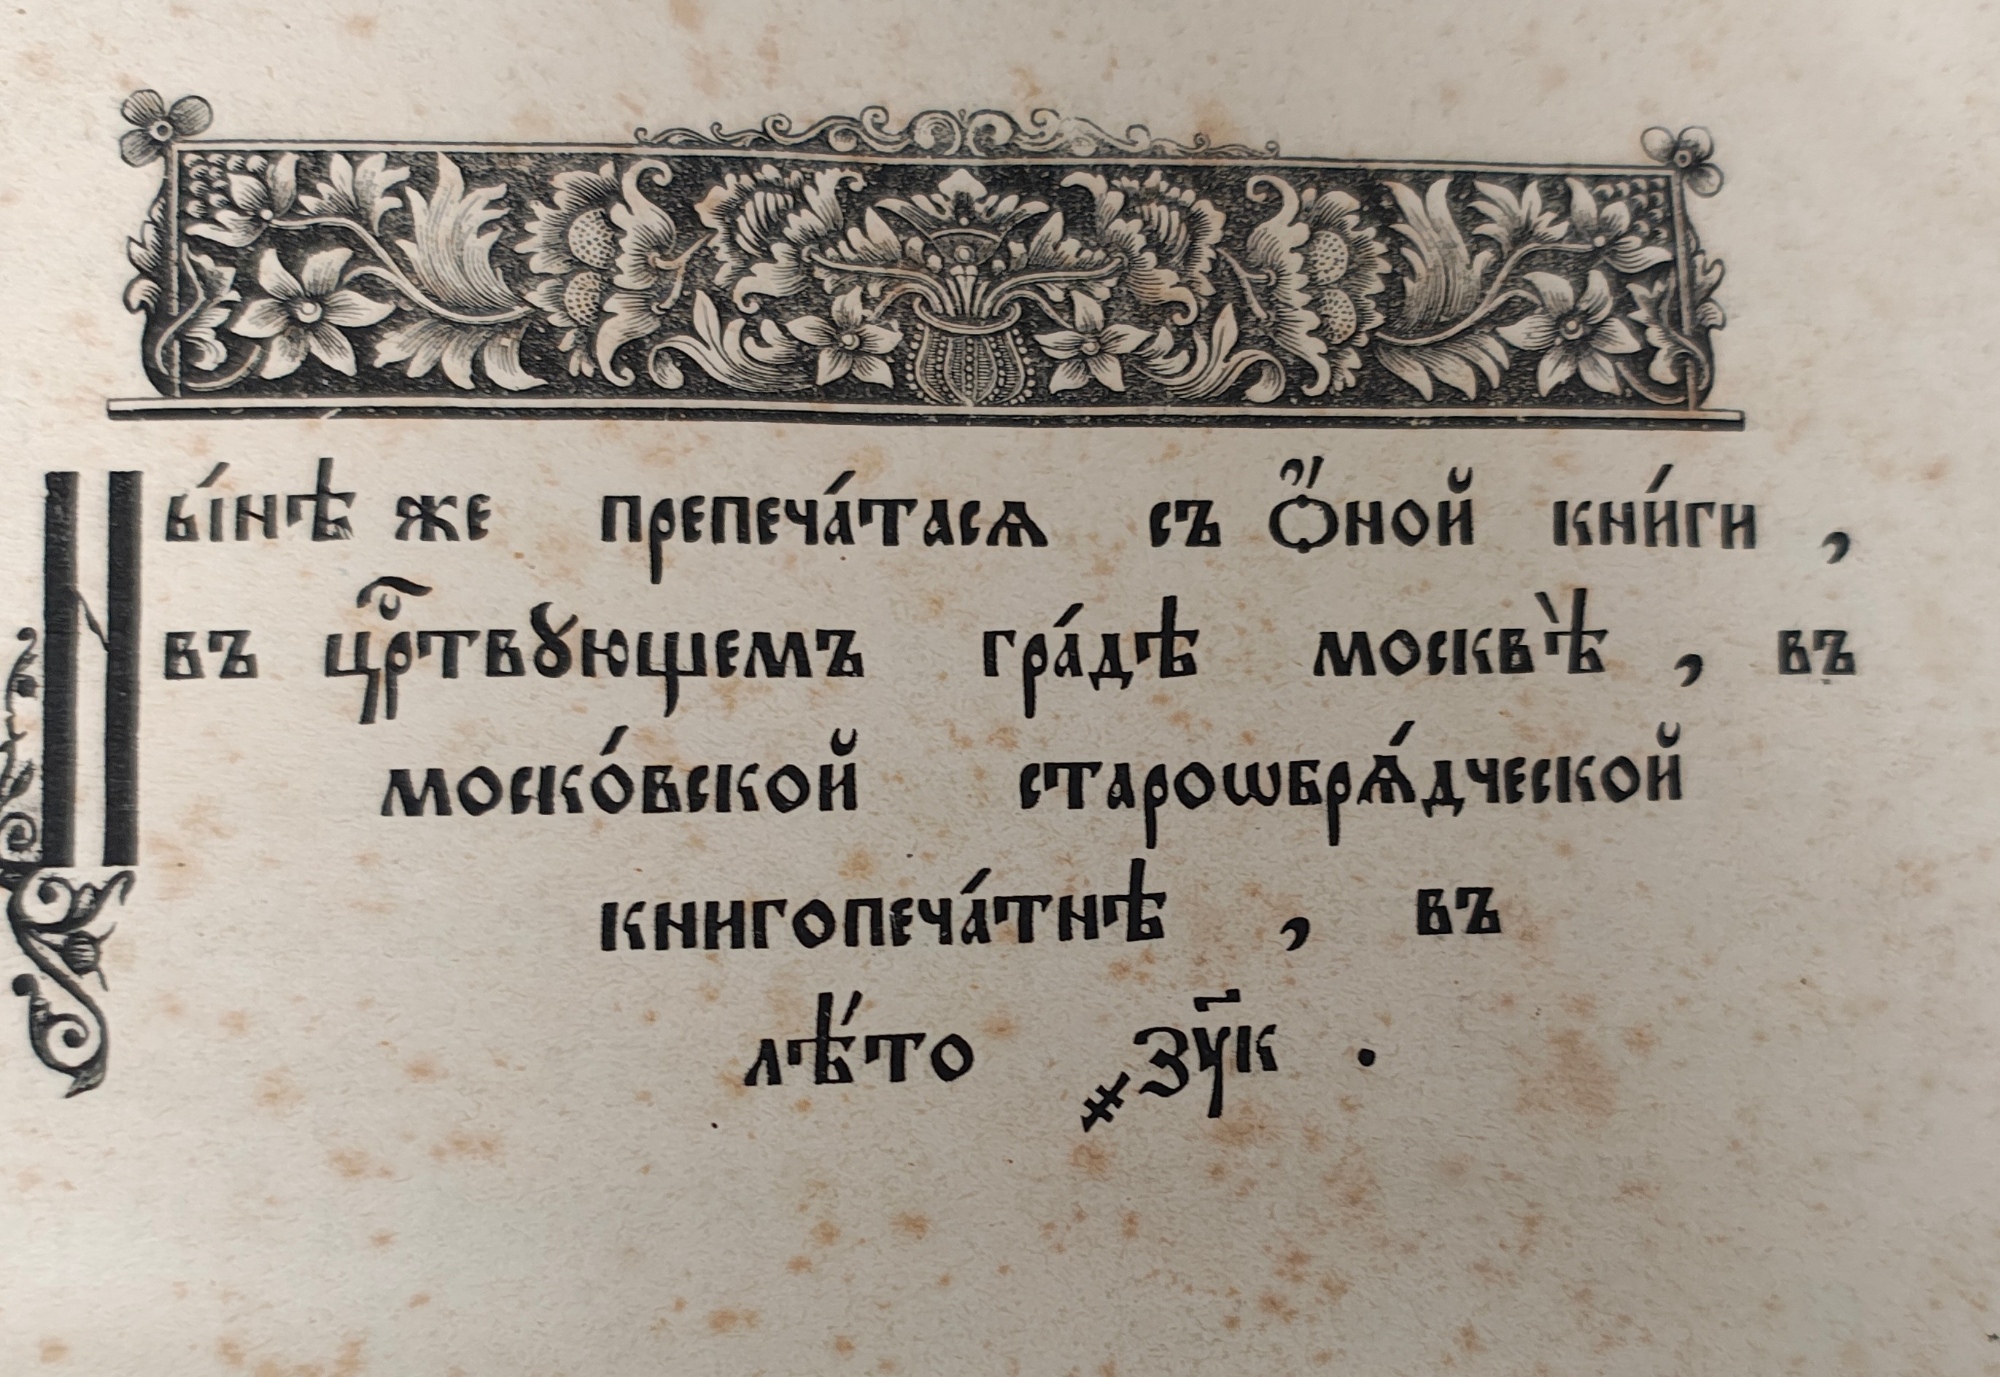 Ны́нѣ же препеча́тасѧ съ Ѻ҆́ной кни́ги ,
въ црⷭ҇твꙋющемъ гра́дѣ москвѣ̀ , въ
моско́вской староѡбрѧ́дческой
книгопеча́тнѣ , въ
лѣ́то ҂зу҃к .